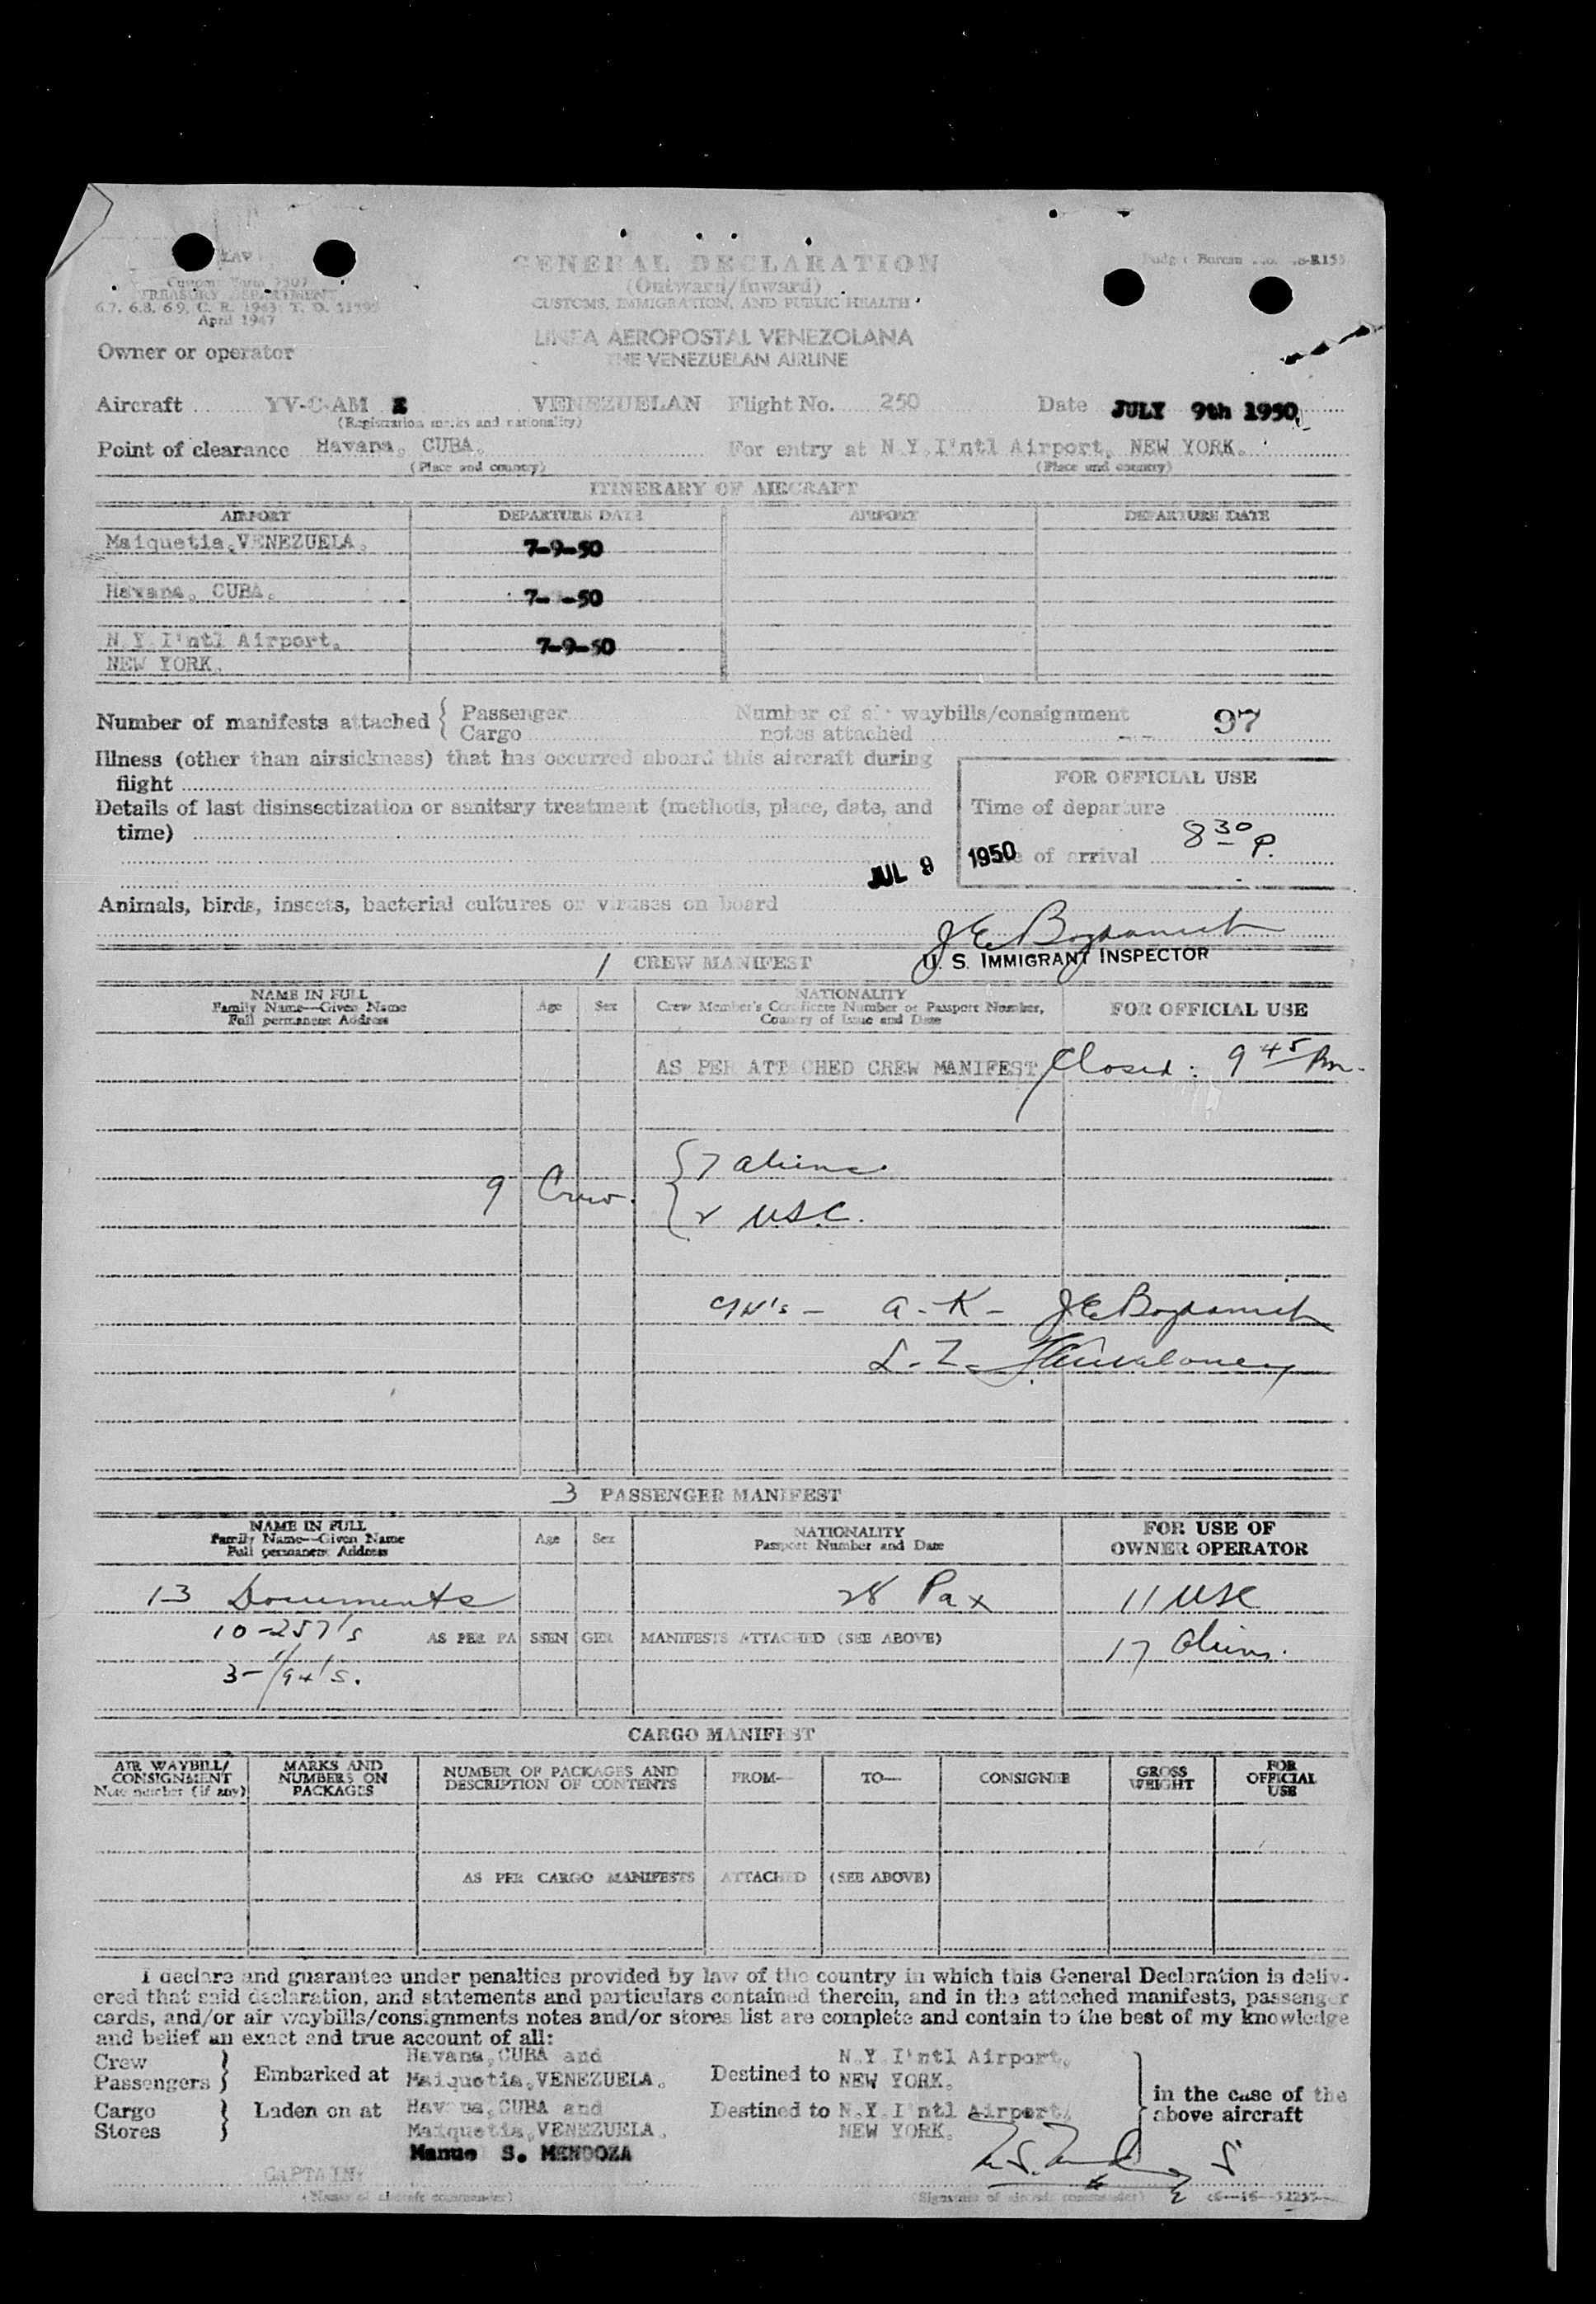 LAV
Customs Form 7507
TREASURY DEPARTMENT
6.7, 6.8, 6.9, C. R. 1943; T. D. 51595
April 1947
GENERAL DECLARATION
(Outward/Inward)
CUSTOMS, IMMIGRATION, AND PUBLIC HEALTH
Budget Bureau No.
LINEA AEROPOSTAL VENEZOLANA
THE VENEZUELAN AIRLINE
Owner or operator
Aircraft YV-C-AM VENEZUELAN Flight No. 250 Date JULY 9th 1950.
(Registration marks and nationality)
Point of clearance Havana, CUBA. For entry at N.Y.I'ntl Airport, NEW YORK.
(Place and country) (Place and country)
ITINERARY OF AIRCRAFT
AIRPORT DEPARTURE DATE AIRPORT DEPARTURE DATE
Maiquetia,VENEZUELA. 7-9-50
Havana, CUBA. 7- -50
N.Y.I'ntl Airport, 7-9-50
NEW YORK.
Number of manifests attached { Passenger Number of air waybills/consignment
Cargo notes attached -- 97
Illness (other than airsickness) that has occurred aboard this aircraft during
flight
FOR OFFICIAL USE
Details of last disinsectization or sanitary treatment (methods, place, date, and
time)
Time of departure
8 30 P.
JUL 9 1950 of arrival
Animals, birds, insects, bacterial cultures or viruses on board
U. S. IMMIGRANT INSPECTOR
1 CREW MANIFEST
NAME IN FULL
Family Name—Given Name
Full permanent Address
Age Sex
NATIONALITY
Crew Member's Certificate Number or Passport Number,
Country of Issue and Date
FOR OFFICIAL USE
AS PER ATTACHED CREW MANIFEST Closed: 9 45 Pm.
9 Crew. { 7 aliens
2 USC.
a.-K-
L.-Z-
3 PASSENGER MANIFEST
NAME IN FULL
Family Name—Given Name
Full permanent Address
Age Sex
NATIONALITY
Passport Number and Date
FOR USE OF
OWNER OPERATOR
13 Documents 28 Pax 11 USC
10-257's AS PER PASSENGER MANIFESTS ATTACHED (SEE ABOVE) 17 Aliens.
CARGO MANIFEST
AIR WAYBILL/
CONSIGNMENT
Note number (if any)
MARKS AND
NUMBERS ON
PACKAGES
NUMBER OF PACKAGES AND
DESCRIPTION OF CONTENTS
FROM—
TO—
CONSIGNEE
GROSS
WEIGHT
FOR
OFFICIAL
USE
AS PER CARGO MANIFESTS ATTACHED (SEE ABOVE)
I declare and guarantee under penalties provided by law of the country in which this General Declaration is deliv-
ered that said declaration, and statements and particulars contained therein, and in the attached manifests, passenger
cards, and/or air waybills/consignments notes and/or stores list are complete and contain to the best of my knowledge
and belief an exact and true account of all:
Crew
Passengers } Embarked at Havana,CUBA and
Maiquetia,VENEZUELA. Destined to N.Y.I'ntl Airport,
NEW YORK.
Cargo
Stores } Laden on at Havana,CUBA and
Maiquetia,VENEZUELA. Destined to N.Y.I'ntl Airport,
NEW YORK.
in the case of the
above aircraft
Manue S. MENDOZA
CAPTAIN:
(Name of aircraft commander) (Signature of aircraft commander)